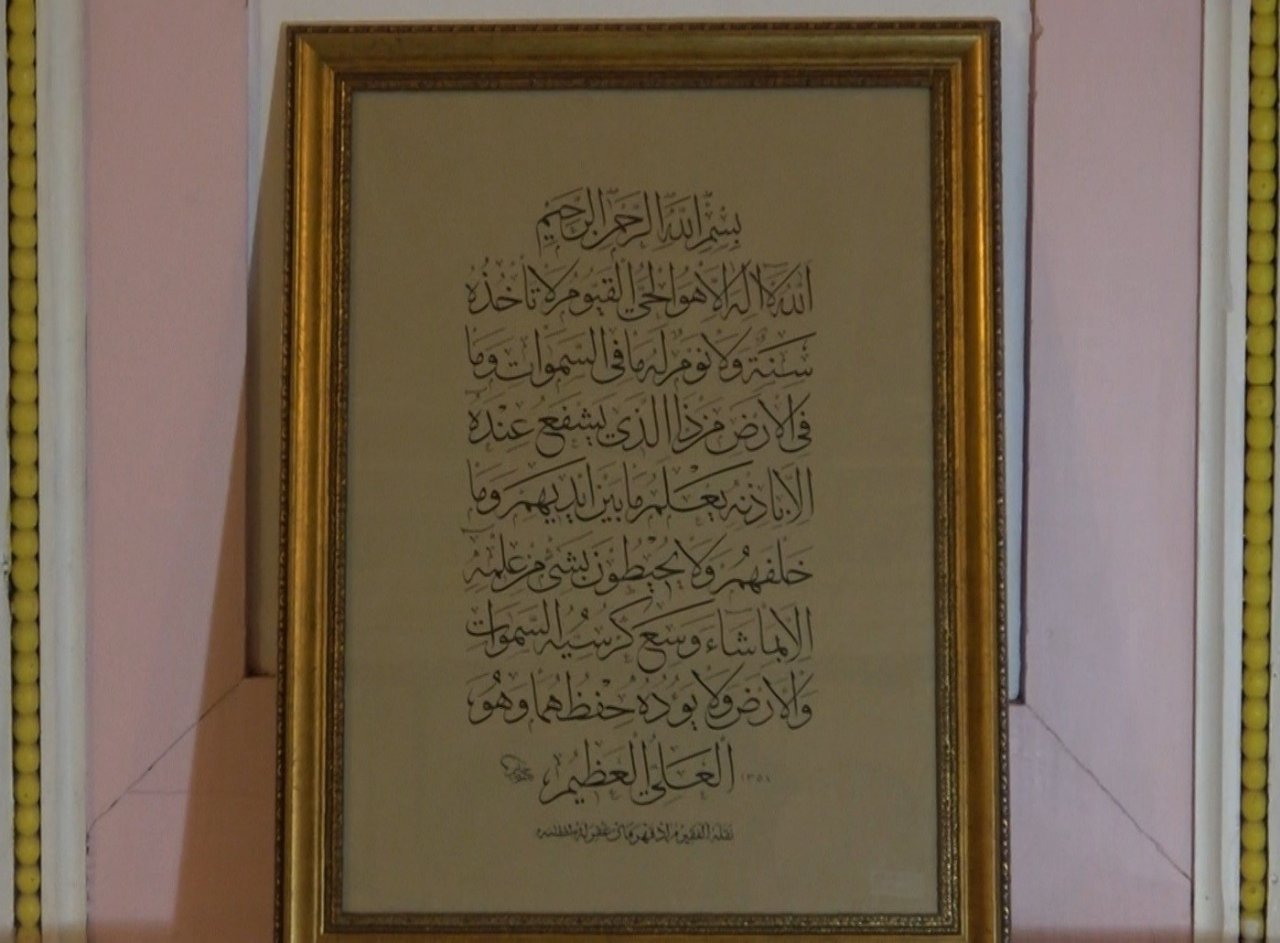 بِسْمِ اللّٰهِ الرَّحْمٰنِ الرَّحِيْمِ
اَللّٰهُ لَا اِلٰهَ اِلَّا هُوَ الْحَيُّ الْقَيُّومُ لَا تَأْخُذُهُ
سِنَةٌ وَلَا نَوْمٌ لَهُ مَا فِى السَّمٰوَاتِ وَمَا
فِى الْاَرْضِ مَنْ ذَا الَّذِى يَشْفَعُ عِنْدَهُ
اِلَّا بِاِذْنِهِ يَعْلَمُ مَا بَيْنَ اَيْدِيهِمْ وَمَا
خَلْفَهُمْ وَلَا يُحِيطُونَ بِشَىْءٍ مِنْ عِلْمِهِ
اِلَّا بِمَا شَاءَ وَسِعَ كُرْسِيُّهُ السَّمٰوَاتِ
وَالْاَرْضَ وَلَا يَؤُدُهُ حِفْظُهُمَا وَهُوَ
الْعَلِىُّ الْعَظِيمُ
١٣٥١
نقله الفقير